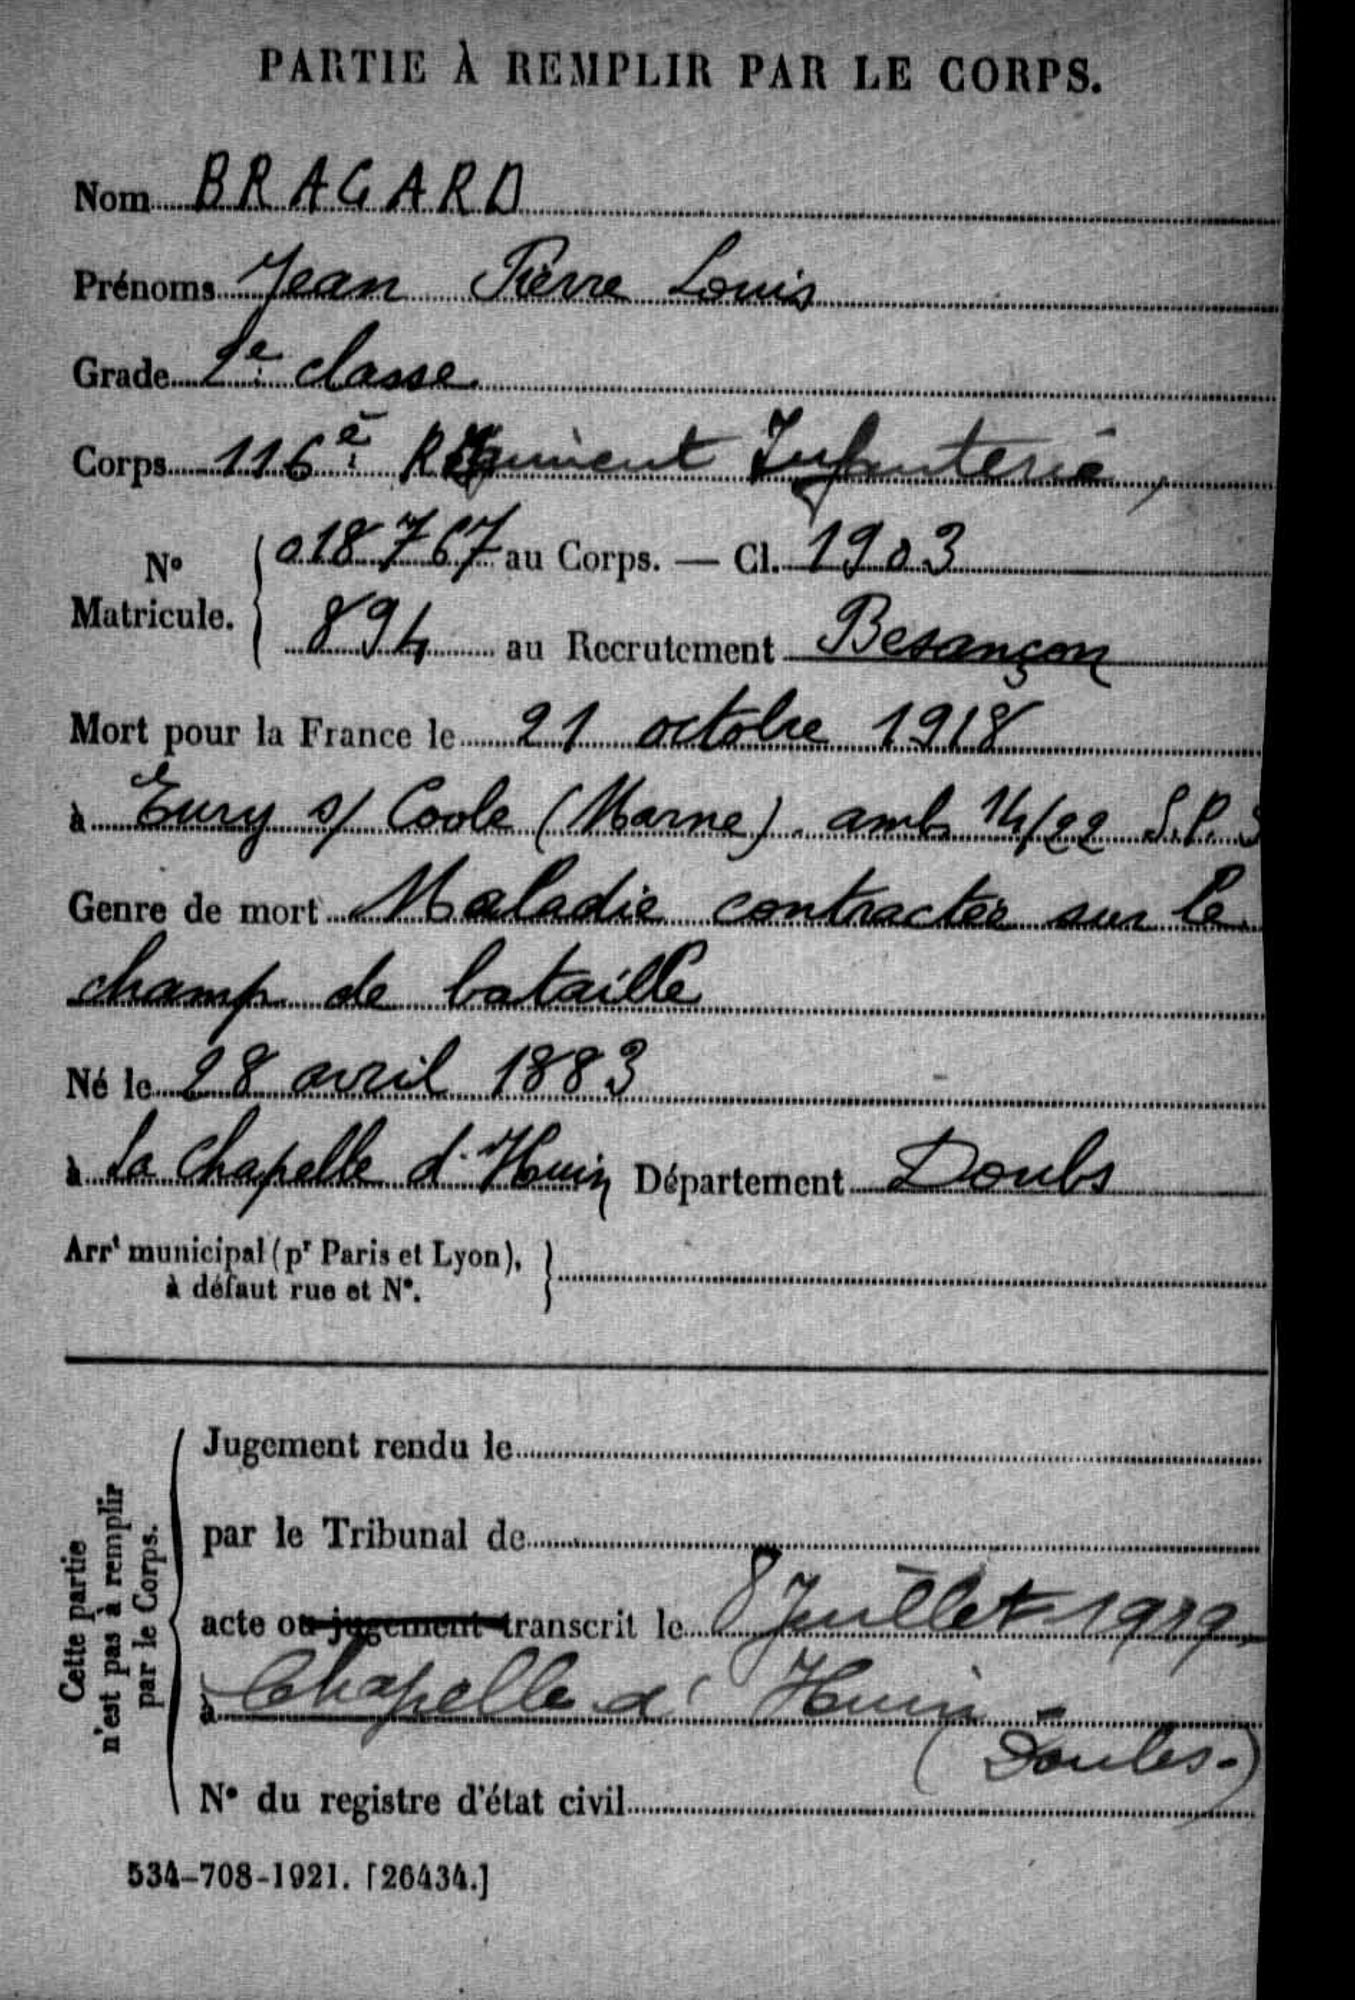 PARTIE À REMPLIR PAR LE CORPS.
Nom BRAGARD
Prénoms Jean Pierre Louis
Grade 2e classe
Corps 116e Régiment Infanterie
N° Matricule. 018767 au Corps. — Cl. 1903
894 au Recrutement Besançon
Mort pour la France le 21 octobre 1918
à Ecury s/ Coole (Marne). amb 14/22 S.P.
Genre de mort Maladie contractée sur le
champ de bataille
Né le 28 avril 1883
à La Chapelle d'Huin Département Doubs
Arrt municipal (pr Paris et Lyon),
à défaut rue et N°.
Cette partie
n'est pas à remplir
par le Corps.
Jugement rendu le
par le Tribunal de
acte ou jugement transcrit le 8 Juillet 1919
à Chapelle d'Huin -
(Doubs-)
N° du registre d'état civil
534-708-1921. [26434.]